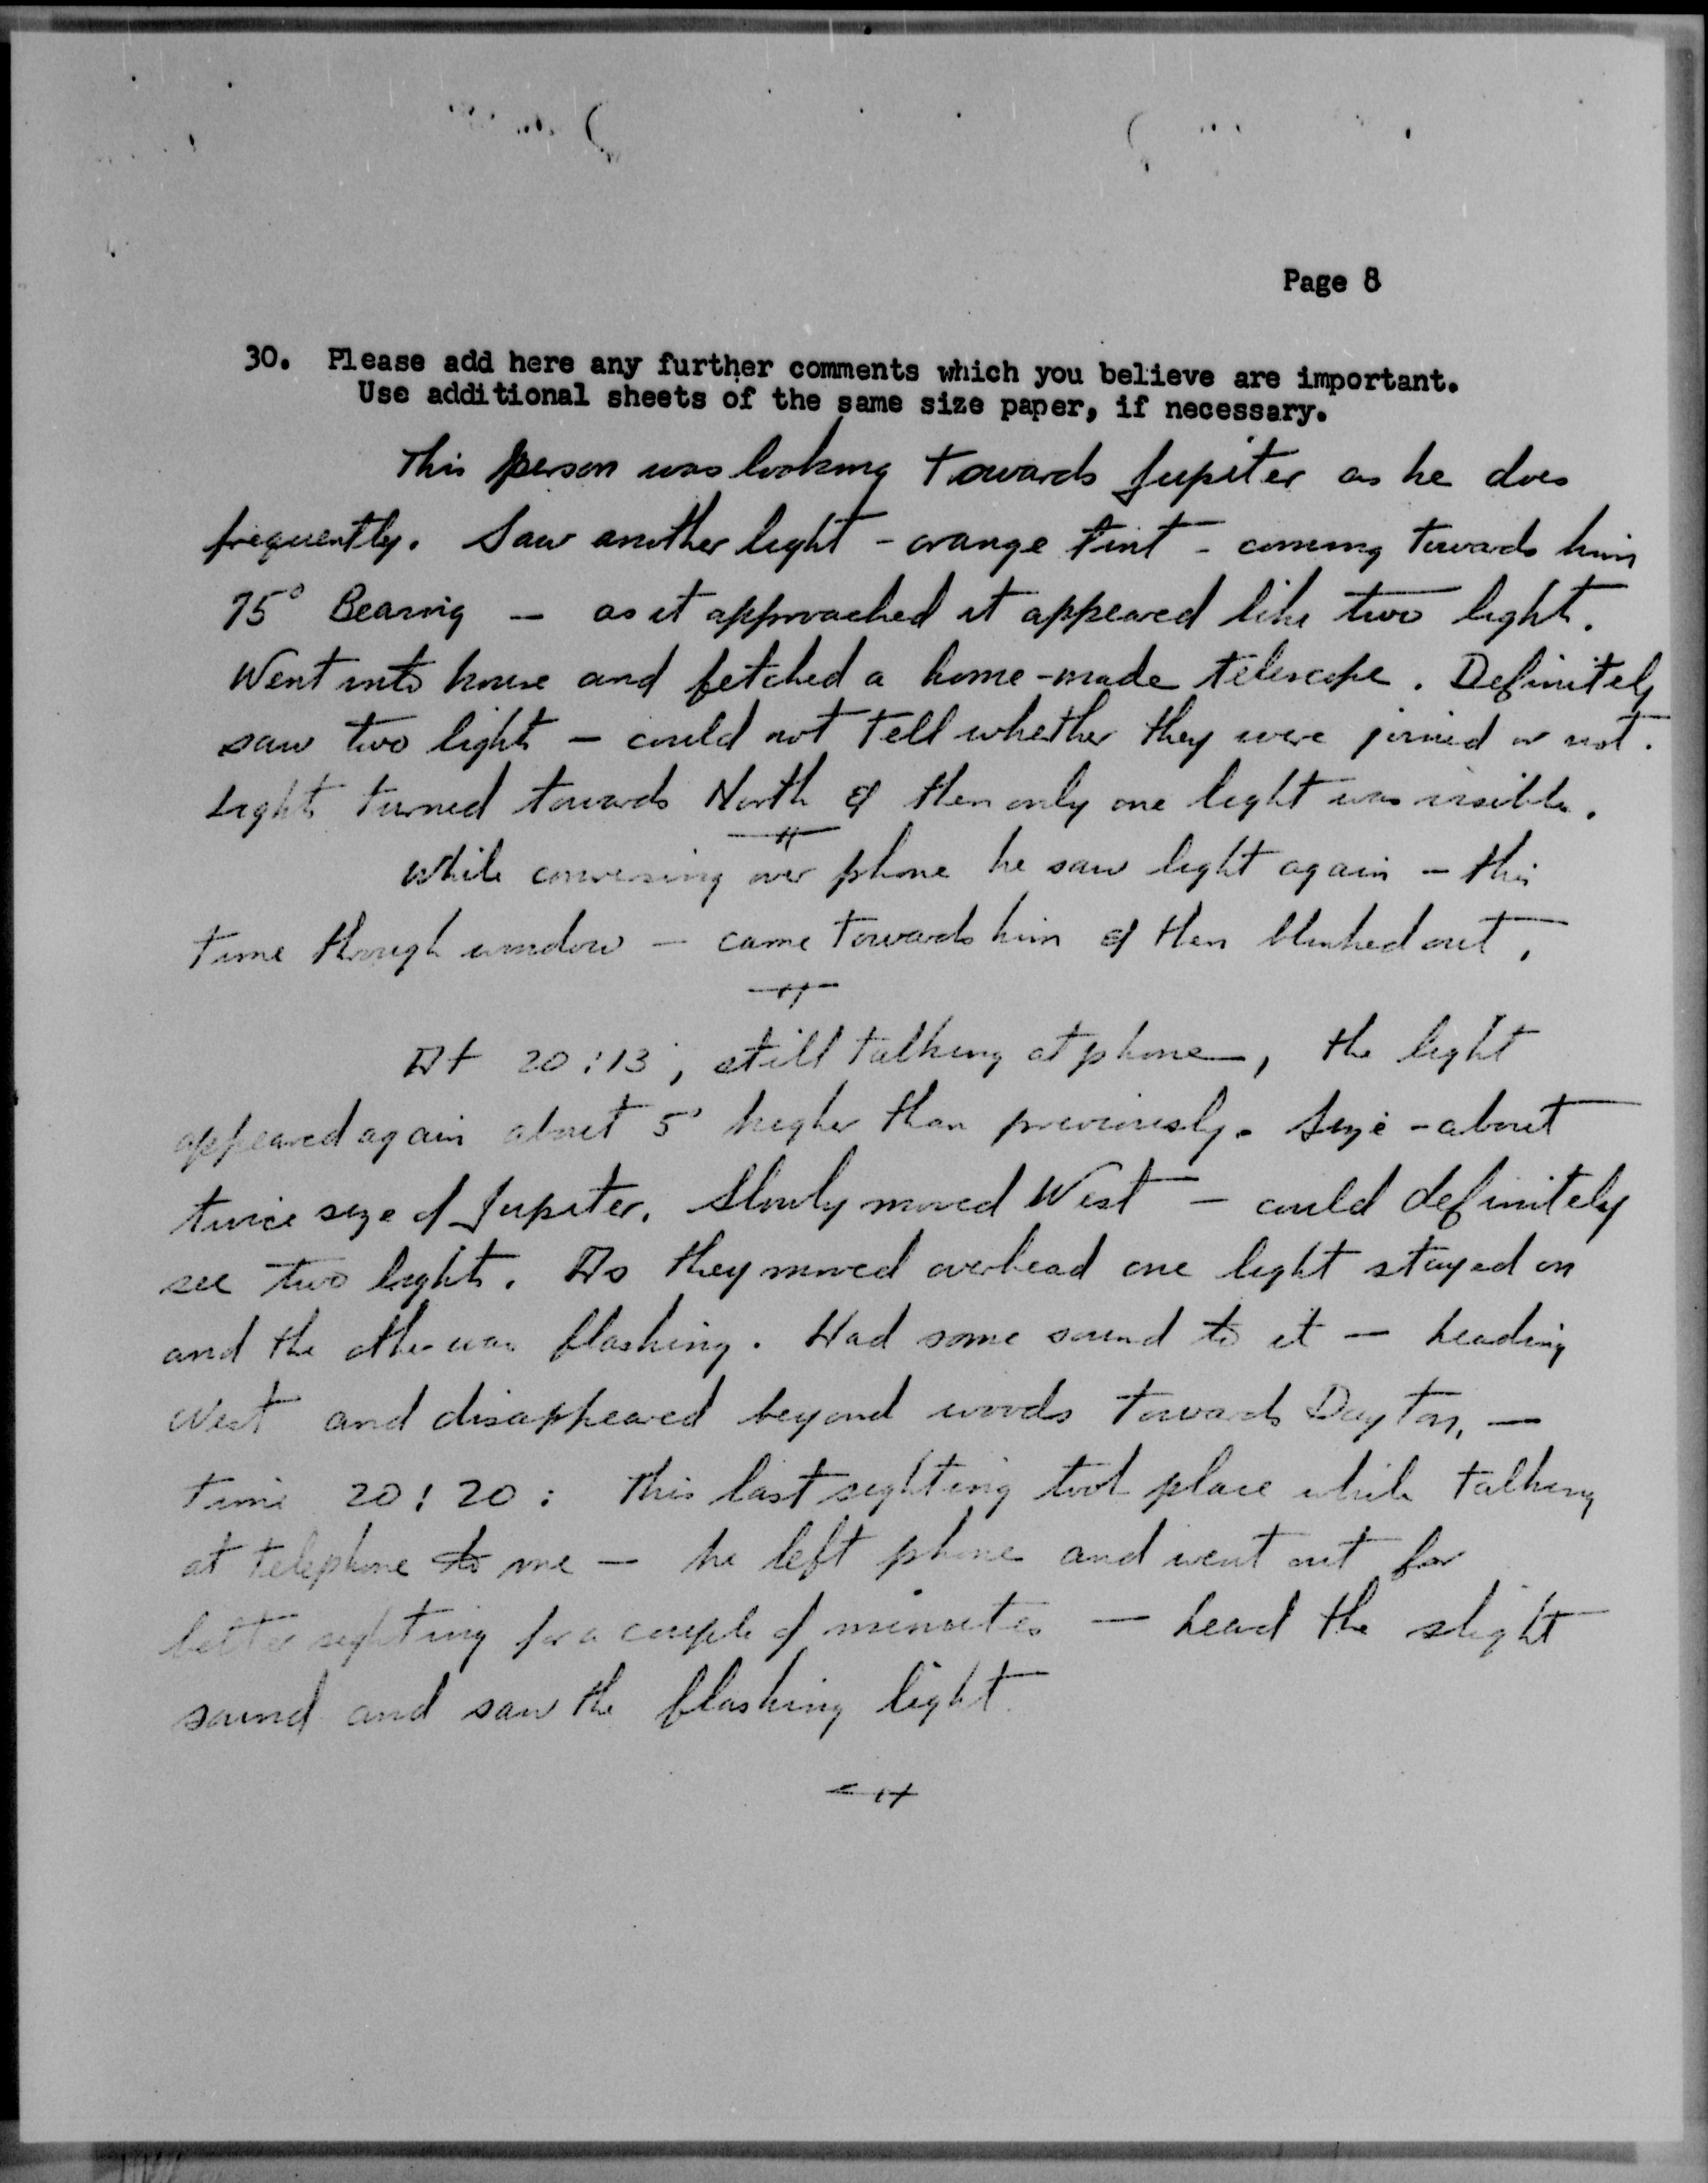 Page 8
30. Please add here any further comments which you believe are important.
Use additional sheets of the same size paper, if necessary.
This person was looking towards Jupiter as he does
frequently. Saw another light - orange tint - coming towards him
75° Bearing — as it approached it appeared like two light.
Went into house and fetched a home-made telescope. Definitely
saw two lights — could not tell whether they were joined or not.
Lights turned towards North & then only one light was visible.
While conversing over phone he saw light again — this
time through window — came towards him & then blinked out.
At 20:13, still talking at phone, the light
appeared again about 5° higher than previously. Size - about
twice size of Jupiter. Slowly moved West — could definitely
see two lights. As they moved overhead one light stayed on
and the other was flashing. Had some sound to it — heading
West and disappeared beyond woods towards Dayton, —
time 20:20: This last sighting took place while talking
at telephone to me — he left phone and went out for
better sighting for a couple of minutes — heard the slight
sound and saw the flashing light.